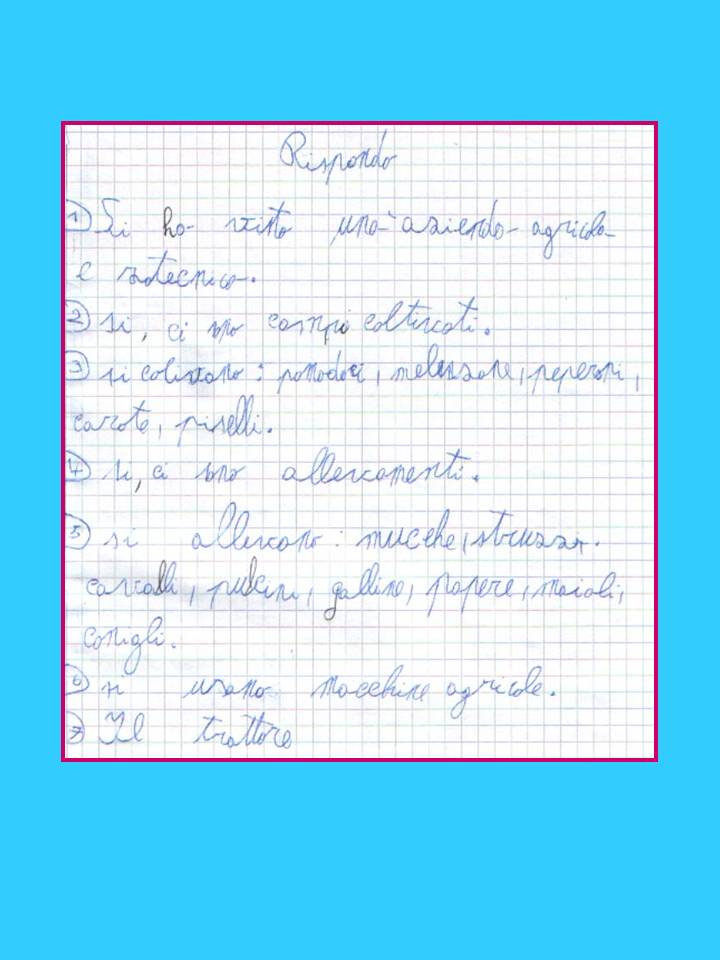 Rispondo
1) Si ho visto una azienda agricola
e zotecnica.
2) si, ci sono campi coltivati.
3) si colivano: pomodori, melenzane, peperoni,
carote, piselli.
4) si, ci sono allevamenti.
5) si allevano: mucche, struzzi.
cavalli, pulcini, galline, papere, maiali,
conigli.
6) si usano macchine agricole.
7) Il trattore